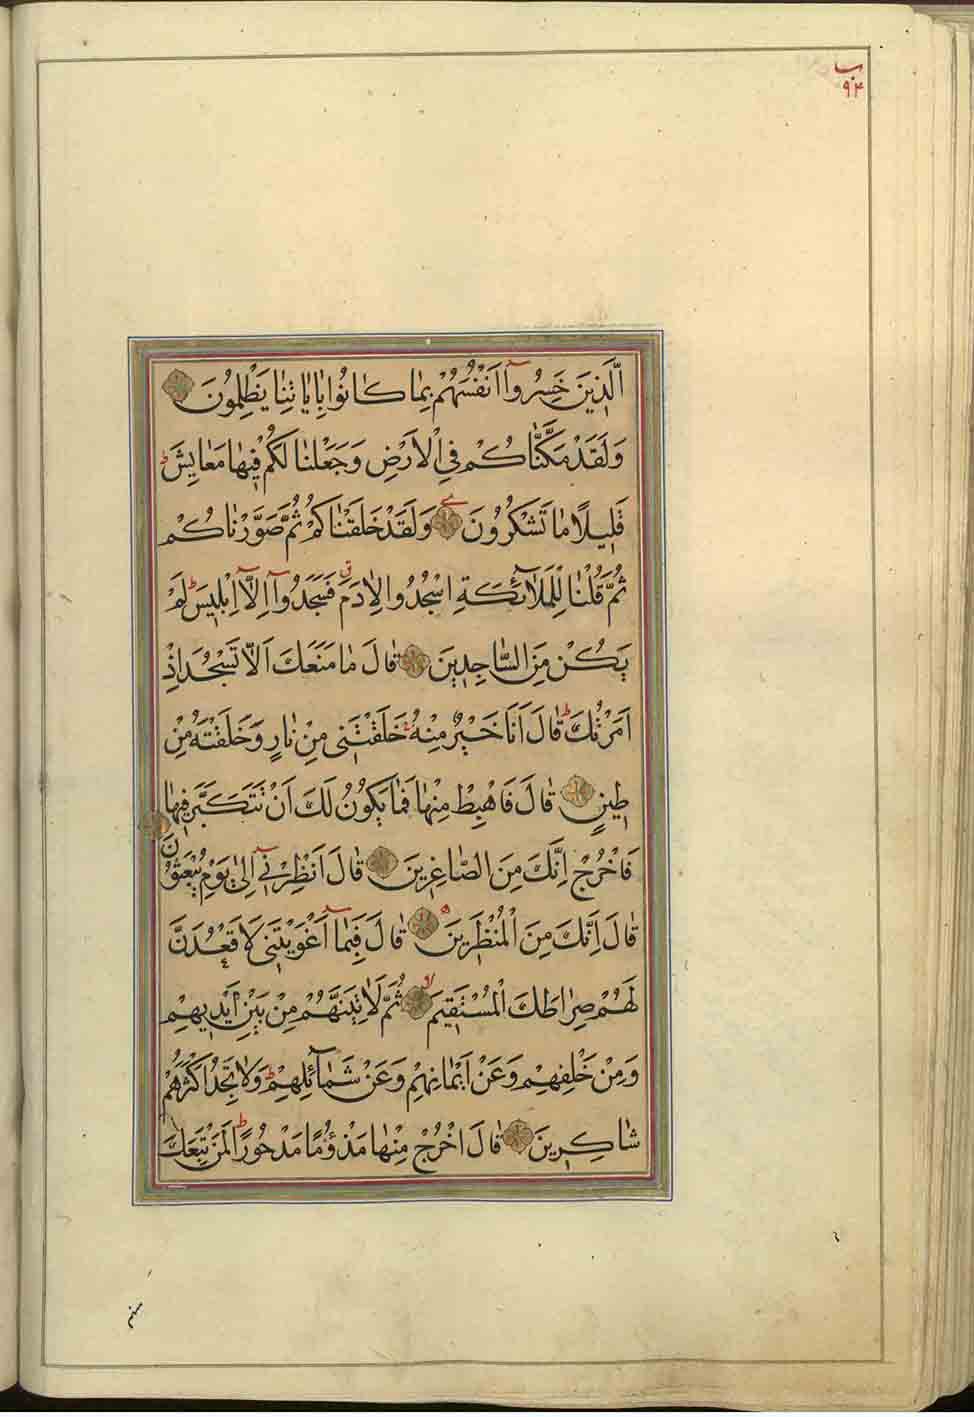 ب
۹۴
الَّذِينَ خَسِرُوآ اَنْفُسَهُمْ بِمَا كَانُوا بِاٰيَاتِنَا يَظْلِمُونَ
وَلَقَدْ مَكَّنَّاكُمْ فِي الْاَرْضِ وَجَعَلْنَا لَكُمْ فِيهَا مَعَايِشَ ط
قَلِيلًا مَا تَشْكُرُونَ وَلَقَدْ خَلَقْنَاكُمْ ثُمَّ صَوَّرْنَاكُمْ
ثُمَّ قُلْنَا لِلْمَلٰٓائِكَةِ اسْجُدُوا لِاٰدَمَ ق فَسَجَدُوآ اِلَّآ اِبْلِيسَ ط لَمْ
يَكُنْ مِنَ السَّاجِدِينَ قَالَ مَا مَنَعَكَ اَلَّا تَسْجُدَ اِذْ
اَمَرْتُكَ ط قَالَ اَنَا خَيْرٌ مِنْهُ خَلَقْتَنِي مِنْ نَارٍ وَخَلَقْتَهُ مِنْ
طِينٍ قَالَ فَاهْبِطْ مِنْهَا فَمَا يَكُونُ لَكَ اَنْ تَتَكَبَّرَ فِيهَا
فَاخْرُجْ اِنَّكَ مِنَ الصَّاغِرِينَ قَالَ اَنْظِرْنِيٓ اِلٰى يَوْمِ يُبْعَثُونَ
قَالَ اِنَّكَ مِنَ الْمُنْظَرِينَ قَالَ فَبِمَآ اَغْوَيْتَنِي لَاَقْعُدَنَّ
لَهُمْ صِرَاطَكَ الْمُسْتَقِيمَ لا ثُمَّ لَاٰتِيَنَّهُمْ مِنْ بَيْنِ اَيْدِيهِمْ
وَمِنْ خَلْفِهِمْ وَعَنْ اَيْمَانِهِمْ وَعَنْ شَمَآئِلِهِمْ ط وَلَا تَجِدُ اَكْثَرَهُمْ
شَاكِرِينَ قَالَ اخْرُجْ مِنْهَا مَذْؤُمًا مَدْحُورًا ط لَمَنْ تَبِعَكَ
منهم